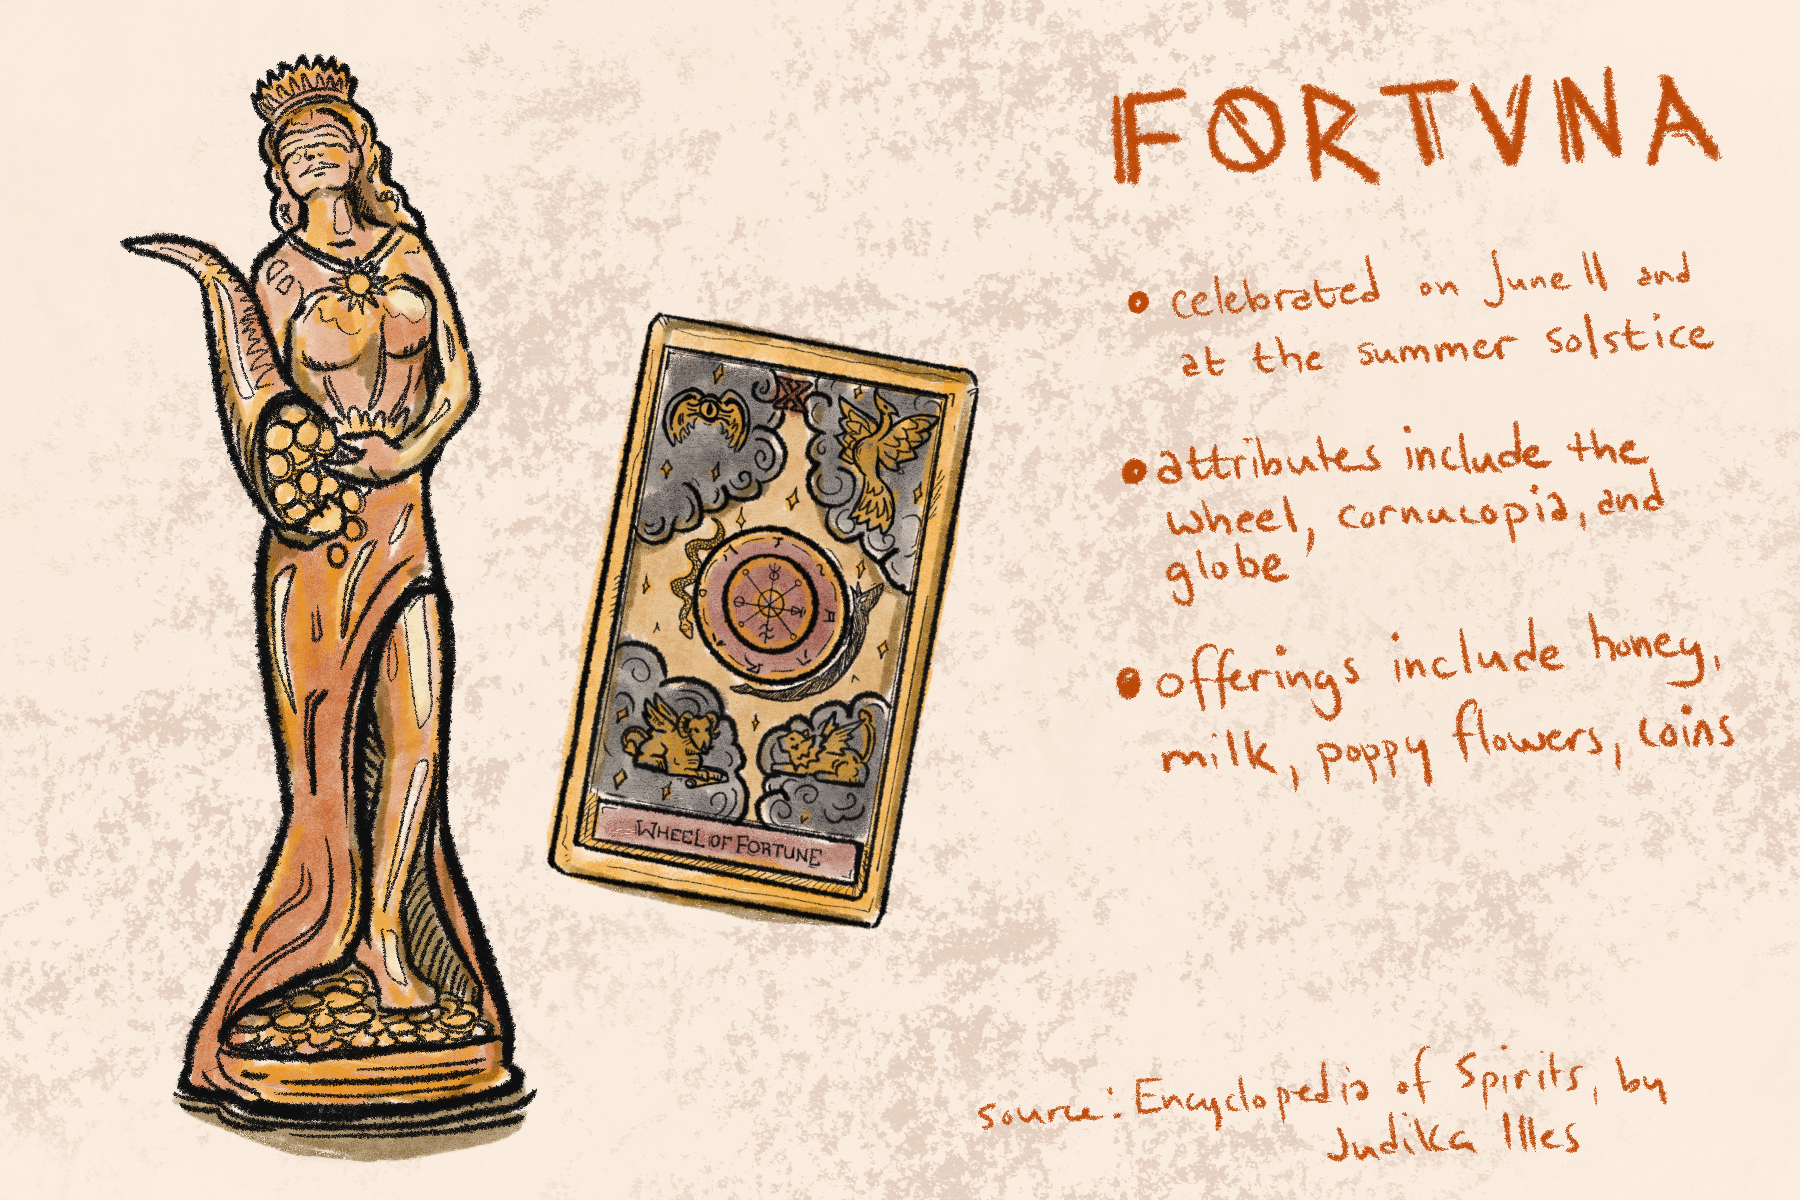 FORTVNA
• celebrated on June 11 and
at the summer solstice
• attributes include the
wheel, cornucopia, and
globe
• offerings include honey,
milk, poppy flowers, coins
X
WHEEL OF FORTUNE
source: Encyclopedia of Spirits, by
Judika Illes